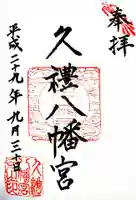 奉拝
久禮八幡宮
平成二十九年九月三十日